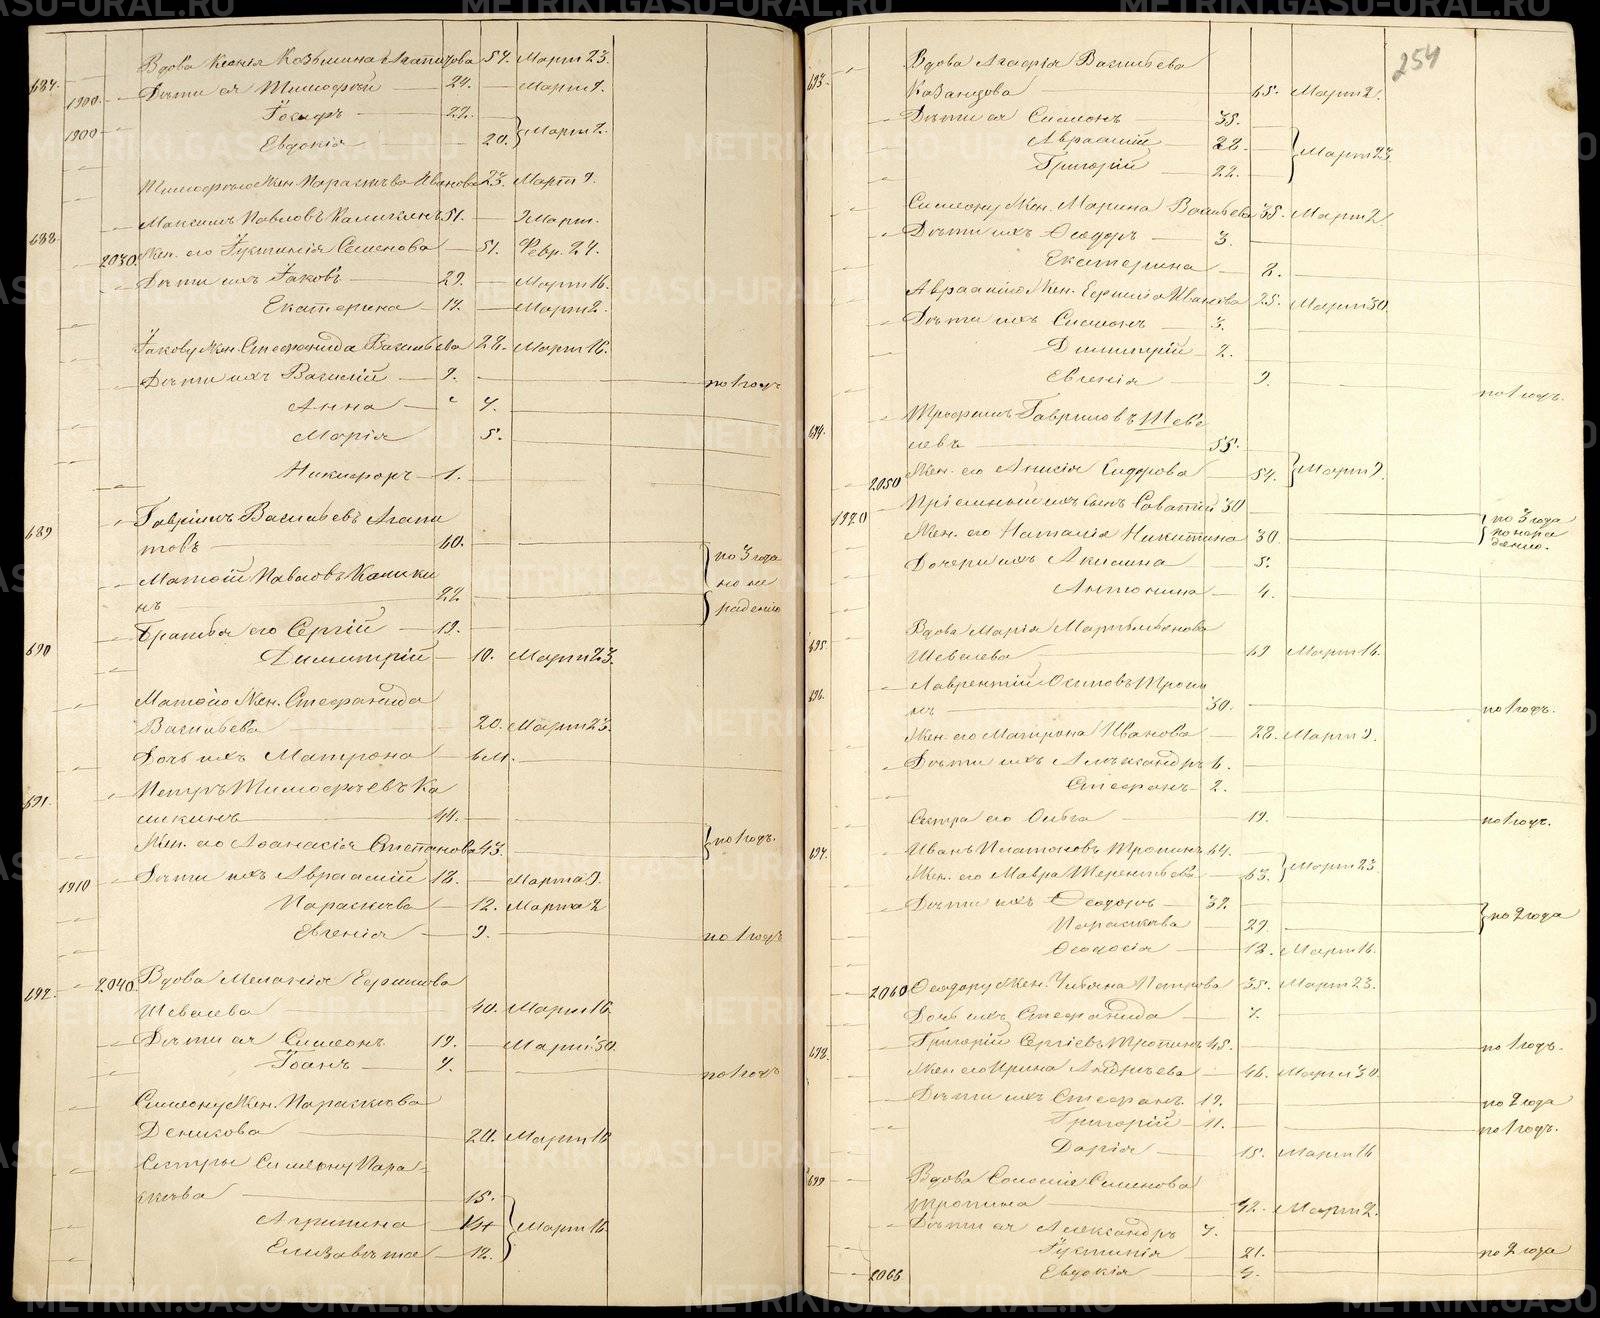 Вдова Ксенія Козьмина Агапитова 57. Март 23.
687. 1900 Дѣти ея Тимофѣй 24. Март 9.
1900 Іосифъ 22.
Евдокія 20. } Март 2.
Тимофѣю Жен. Параскѣва Иванова 23. Март 9.
Максимъ Павловъ Каликинъ 51. 2 Март.
688. 2030. Жен. его Іустинія Семенова 51. Февр. 24.
Дѣти ихъ Іаковъ 29. Март 16.
Екатерина 17. Март 2.
Іакову Жен. Стефанида Васильева 28. Март 16.
Дѣти ихъ Василій 9. по 1 году
Анна 7.
Марія 5.
Никифоръ 1.
Гавріилъ Васильевъ Агапи
689 товъ 60. по 3 года
Матѳій Павловъ Калики но не
нъ 22 радению
Братья его Сергій 19.
690 Димитрій 10. Март 23.
Матѳію Жен. Стефанида
Васильева 20. Март 23.
Дочь ихъ Матрона 6 м.
Петръ Тимофѣевъ Ка
691. ликинъ 44.
Жен. его Аѳанасія Степанова 43. } по 1 годъ.
1910 Дѣти ихъ Авраамій 18. Марта 9.
Параскева 12. Марта 2
Евгенія 9. по 1 годъ
692. 2040. Вдова Меланія Ефимова
Шевалева 40. Март 16
Дѣти ея Симеонъ 19. Март 30.
Іоанъ 7. по 1 годъ
Симеону Жен. Параскѣва
Деникова 20. Март 16
Сестры Симеону Пара-
скѣва 15.
Агрипина 14 } Март 16
Елизавѣта 12.
254
693. Вдова Агафія Васильева
Казанцова 65. Март 2.
Дѣти ея Симеонъ 35.
Авраамій 28. } Март 23
Григорій 22.
Симеону Жен. Марина Васильева 35. Март 2
Дѣти ихъ Ѳеодоръ 3.
Екатерина 8.
Авраамію Жен. Ефимія Иванова 25. Март 30.
Дѣти ихъ Симеонъ 3.
Димитрій 2.
Евгенія 9. по 1 годъ.
694. Трофимъ Гавриловъ Шева
левъ 55.
2050 Жен. его Анисія Сидорова 54. } Март 9.
1920 Пріемный ихъ сынъ Саватій 30 по 3 года
Жен. его Наталія Никитина 30. по нера
Дочери ихъ Акилина 5. дению.
Антонина 4.
695. Вдова Марія Мартемьянова
Шевалева 69 Март 16.
696. Лаврентій Осиповъ Тропи
нъ 30. по 1 годъ.
Жен. его Матрона Иванова 28. Март 9.
Дѣти ихъ Алѣксандръ 6.
Стефанъ 2.
Сестра его Ольга 19. по 1 годъ.
697. Иванъ Платоновъ Тропинъ 64.
Жен. его Мавра Терентьева 63. } Март 23
Дѣти ихъ Ѳеодоръ 32. } по 2 года
Параскѣва 29.
Ѳеодосія 18. Март 16.
2060 Ѳеодору Жен. Ульяна Петрова 35. Март 23.
Дочь ихъ Стефанида 7.
698. Григорій Сергіевъ Тропинъ 45. по 1 годъ.
Жен его Ирина Андрѣева 46. Март 30
Дѣти ихъ Стефанъ 19. по 2 года
Григорій 11. по 1 годъ.
Дарія 15. Март 16
699 Вдова Соломія Симонова
Тропина 42. Март 2.
Дѣти ея Александръ 7.
Іустинія 21. по 2 года
2066 Евдокія 9.